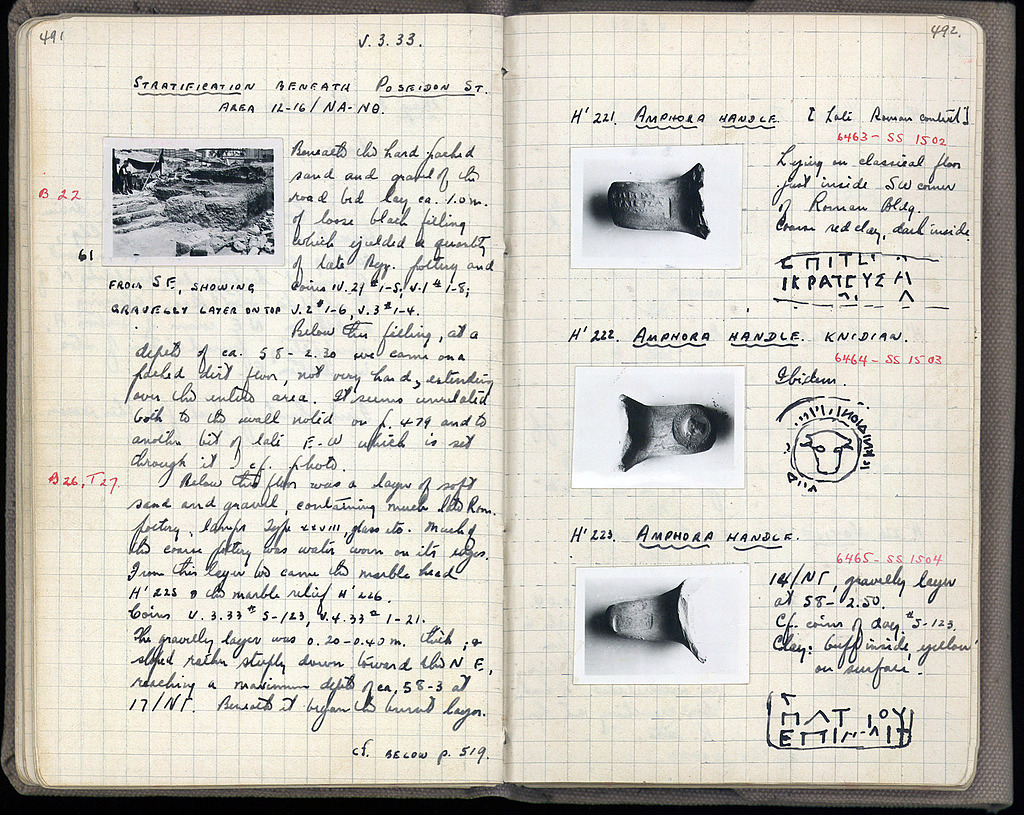 491
V.3.33.
STRATIFICATION BENEATH POSEIDON ST.
AREA 12-16/NA-NB.
B 22
61
FROM SE, SHOWING
GRAVELLY LAYER ON TOP
Beneath the hard packed
sand and gravel of the
road bed lay ca. 1.0 m.
of loose black filling
which yielded a quantity
of late Byz. pottery and
coins IV.29 #1-5, V.1 #1-8,
V.2 #1-6, V.3 #1-4.
Below this filling, at a
depth of ca. 58-2.30 we came on a
packed dirt floor, not very hard, extending
over the entire area. It seems unrelated
both to the wall noted on p. 479 and to
another bit of late E-W which is set
through it cf. photo.
B26, T27.
Below this floor was a layer of soft
sand and gravel, containing much late Rom.
pottery, lamps Type XXVIII, glass etc. Much of
the coarse pottery was water worn on its edges.
From this layer too came the marble head
H' 225 & the marble relief H' 226.
Coins V.3.33 # 5-123, V.4.33 # 1-21.
The gravelly layer was 0.20-0.40 m. thick, &
sloped rather steeply down toward the NE,
reaching a maximum depth of ca. 58-3 at
17/NΓ. Beneath it began the burnt layer.
cf. BELOW p. 519.
492.
H' 221. AMPHORA HANDLE. [Late Roman context]
6463 - SS 1502
Lying on classical floor
just inside SW corner
of Roman Bldg.
Coarse red clay, dark inside.
ΕΠΙΤΙ
ΙΚΡΑΤΕΥΣ Α
H' 222. AMPHORA HANDLE. KNIDIAN.
6464 - SS 1503
Ibidem.
ΚΝΙΔΙΟΝ
H' 223. AMPHORA HANDLE.
6465 - SS 1504
14/NΓ, gravelly layer
at 58-2.50.
Cf. coins of day #5-123.
Clay: buff inside, yellow
on surface.